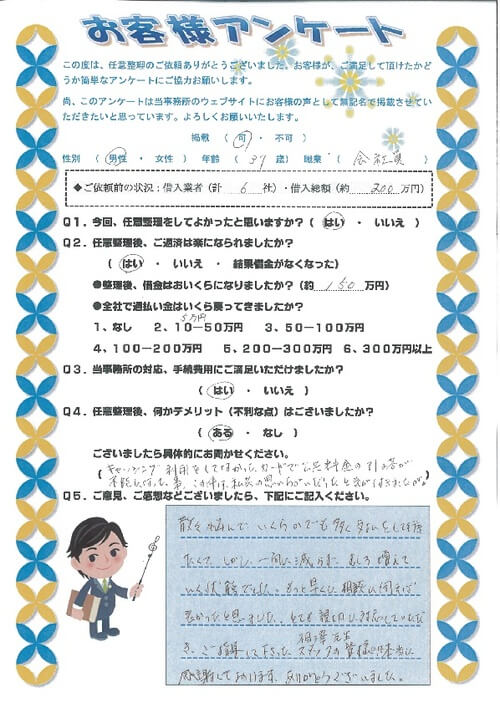 お客様アンケート
この度は、任意整理のご依頼ありがとうございました。お客様が、ご満足して頂けたかど
うか簡単なアンケートにご協力お願いします。
尚、このアンケートは当事務所のウェブサイトにお客様の声として無記名で掲載させてい
ただきたいと思っています。よろしくお願いいたします。
掲載 ( 可 ・ 不可 )
性別 ( 男性 ・ 女性 ) 年齢 ( 37 歳) 職業 ( 会社員 )
◆ご依頼前の状況:借入業者(計 6 社)・借入総額(約 200 万円)
Q1.今回、任意整理をしてよかったと思いますか?( はい ・ いいえ )
Q2.任意整理後、ご返済は楽になられましたか?
( はい ・ いいえ ・ 結果借金がなくなった)
●整理後、借金はおいくらになりましたか?(約 150 万円)
●全社で過払い金はいくら戻ってきましたか?
5万円
1、なし 2、10―50万円 3、50―100万円
4、100―200万円 5、200―300万円 6、300万円以上
Q3.当事務所の対応、手続費用にご満足いただけましたか?
( はい ・ いいえ )
Q4.任意整理後、何かデメリット(不利な点)はございましたか?
( ある ・ なし )
ございましたら具体的にお聞かせください。
キャッシング利用をしてなかったカードで公共料金の引落が
Q5.ご意見、ご感想などございましたら、下記にご記入ください。
散々悩んで いくらかでも多く支払をして行き
たくて、しかし、一向に減らず、むしろ増えて
いく状態でした。もっと早くに相談に伺えば
良かったと思いました。とても親切に対応していただ
き、ご指導して下さった 先生 スタッフの皆様に本当に
感謝しております。ありがとうございました。